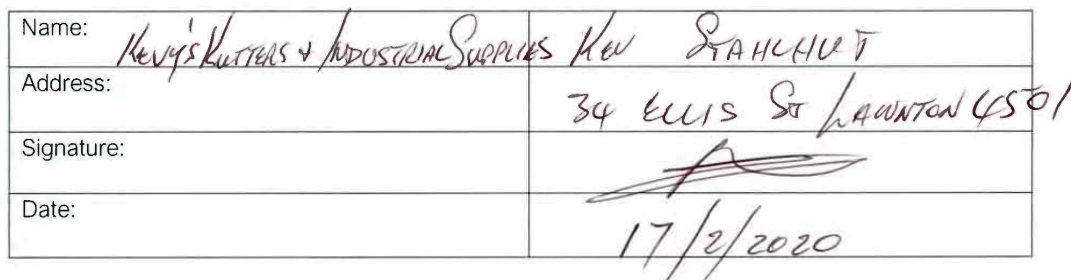 Name: Kevy's Kutters & Industrial Supplies Kev Stahlhut
Address: 34 Ellis St Lawnton 4501
Signature:
Date: 17/2/2020